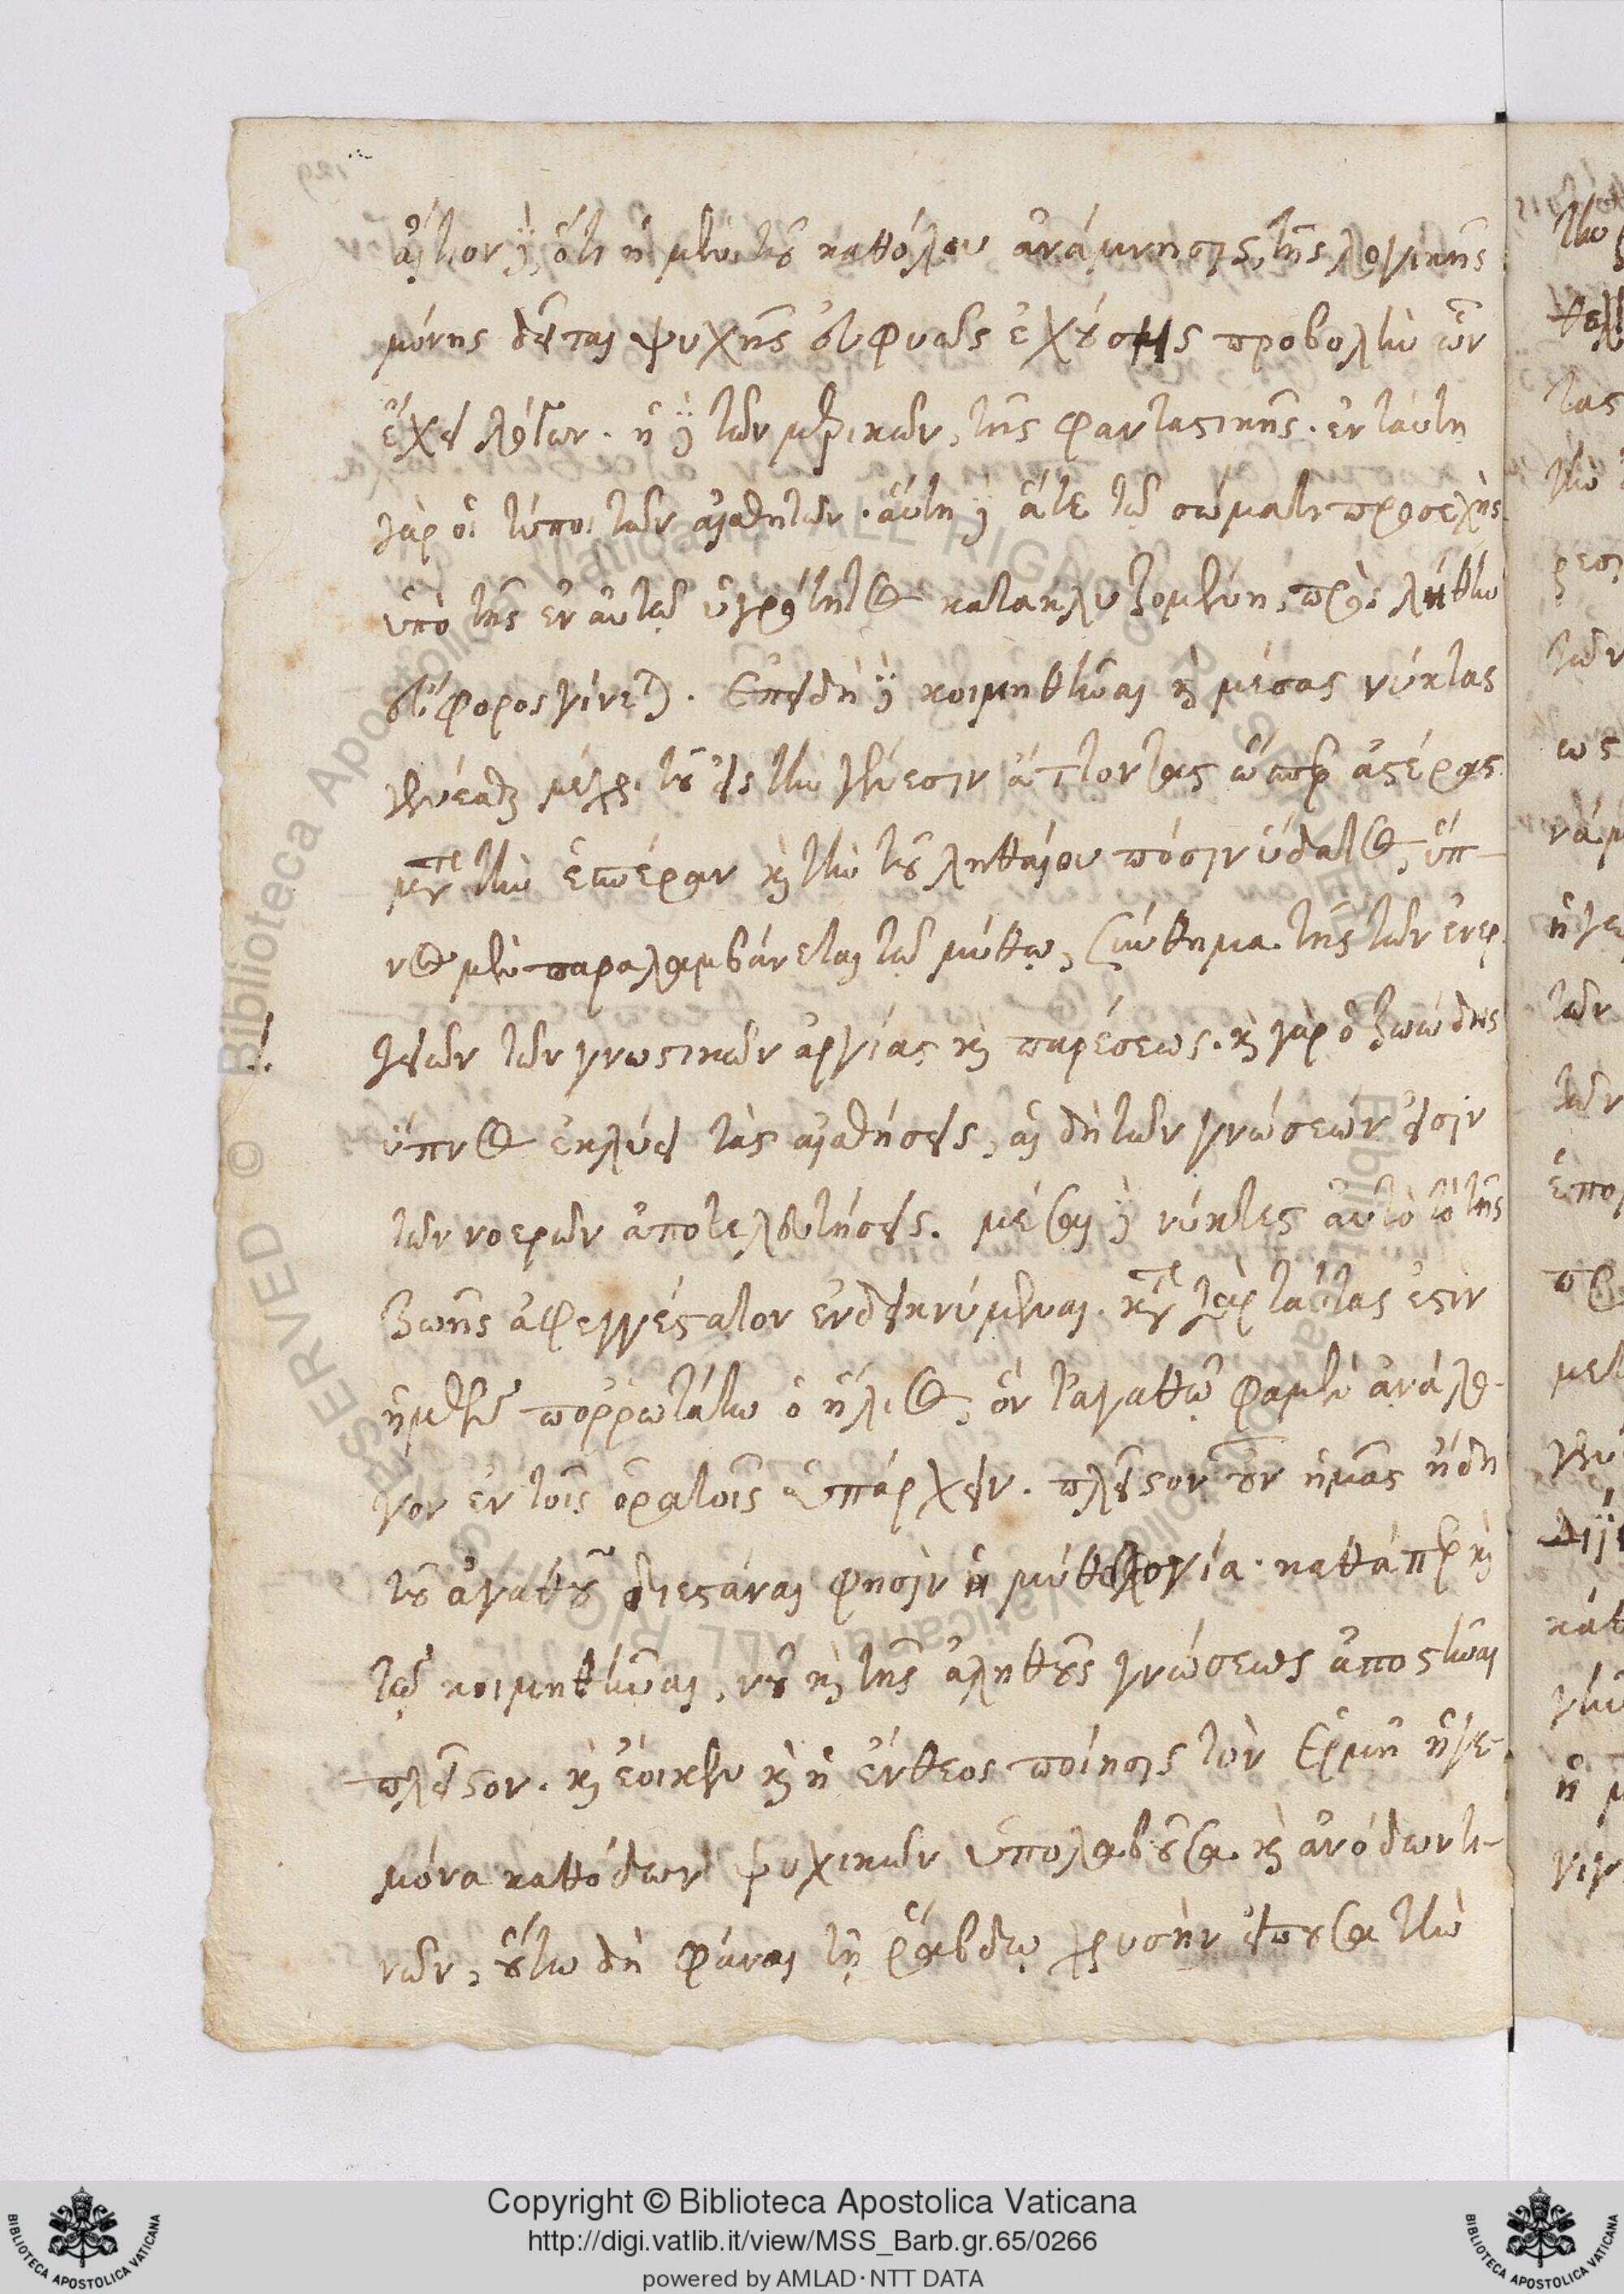 αἴτιον δὲ, ὅτι ἡ μὲν τοῦ καθόλου ἀνάμνησις, τῆς λογικῆς
μόνης δεῖται ψυχῆς εὐφυῶς ἐχούσης προβολὴν ὧν
ἔχει λόγων. ἡ δὲ τῶν μερικῶν, τῆς φανταστικῆς. ἐν ταύτῃ
γὰρ οἱ τύποι τῶν αἰσθητῶν. αὕτη δὲ ἅτε τῷ σώματι προσεχὴς
ὑπὸ τῆς ἐν αὐτῷ ὑγρότητος κατακλυζομένη, πρὸς λήθην
εὔφορος γίνεται. Ἐπειδὴ δὲ κοιμηθῆναι καὶ μέσας νύκτας
γενέσθαι μέχρι τοῦ εἰς τὴν γένεσιν ἄττοντας ὥσπερ ἀστέρας
μετὰ τὴν ἑσπέραν καὶ τὴν τοῦ ληθαίου πόσιν ὕδατος, ὕπ-
νος μὲν παραλαμβάνεται τῷ μύθῳ, σύνθημα τῆς τῶν ἐνερ
γειῶν τῶν γνωστικῶν ἀργίας καὶ παρέσεως. καὶ γὰρ ὁ ζωώδης
ὕπνος ἐκλύει τὰς αἰσθήσεις, αἳ δὴ τῶν γνώσεών εἰσιν
τῶν νοερῶν ἀποτελευτήσεις. μέσαι δὲ νύκτες αὐτὸ τὸ τῆς
ζωῆς ἀφεγγέστατον ἐνδεικνύμεναι. κατὰ γὰρ ταύτας ἐστιν
ἡμῶν πορρωτάτω ὁ ἥλιος, ὃν τἀγαθῷ φαμὲν ἀνάλο-
γον ἐν τοῖς ὁρατοῖς ὑπάρχειν. πλεῖστον οὖν ἡμᾶς ἤδη
τοῦ ἀγαθοῦ διεστάναι φησὶν ἡ μυθολογία. καθάπερ καὶ
τῷ κοιμηθῆναι, νοῦ καὶ τῆς ἀληθοῦς γνώσεως ἀποστῆναι
πλεῖστον. καὶ ἔοικεν καὶ ἡ ἔνθεος ποίησις τὸν Ἑρμῆ ἡγε-
μόνα καθόδων ψυχικῶν ὑπολαβοῦσα καὶ ἀνόδων τι-
νῶν, οὕτω δὴ φάναι τῇ ῥάβδῳ χρυσὴν εἰποῦσα τὴν
Copyright © Biblioteca Apostolica Vaticana
http://digi.vatlib.it/view/MSS_Barb.gr.65/0266
powered by AMLAD·NTT DATA